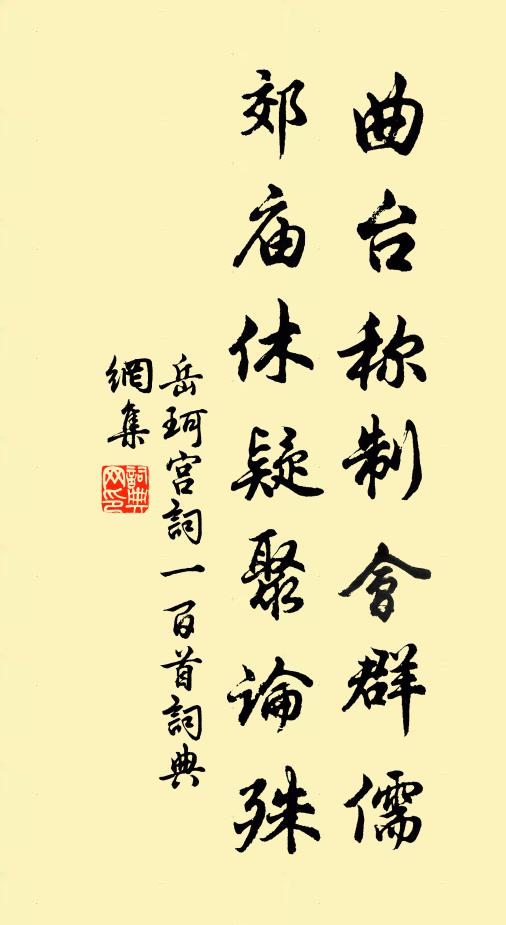 曲台称制会群儒
郊庙休疑聚论殊
岳珂宫詞一百首詞典
網集
詞典网印